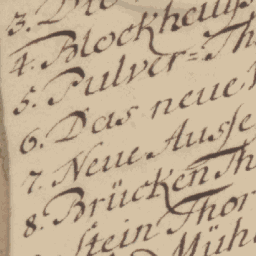 3. Die
4. Blockheuß
5. Pulver=Th
6. Das neue
7. Neue Ausse
8. Brücken Th
Stein Thor
Müh